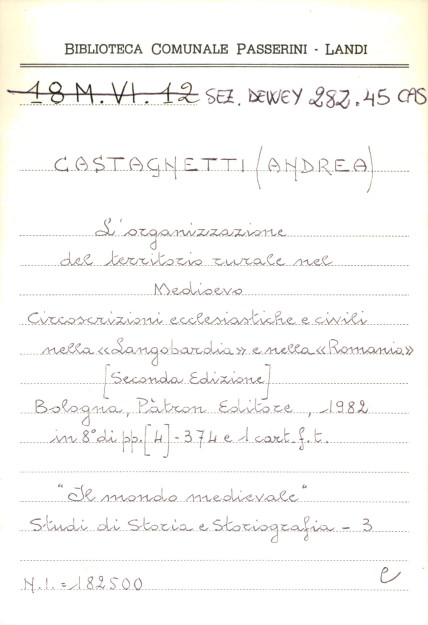 BIBLIOTECA COMUNALE PASSERINI - LANDI
18 M. VI. 12 SEZ. DEWEY 282.45 CAS
CASTAGNETTI (ANDREA)
L'organizzazione
del territorio rurale nel
Medioevo
Circoscrizioni ecclesiastiche e civili
nella «Langobardia» e nella «Romania»
[Seconda Edizione]
Bologna, Pàtron Editore, 1982
in 8° di pp. [4]-374 e 1 cart. f. t.
"Il mondo medievale"
Studi di Storia e Storiografia - 3
N. I. = 182500
e